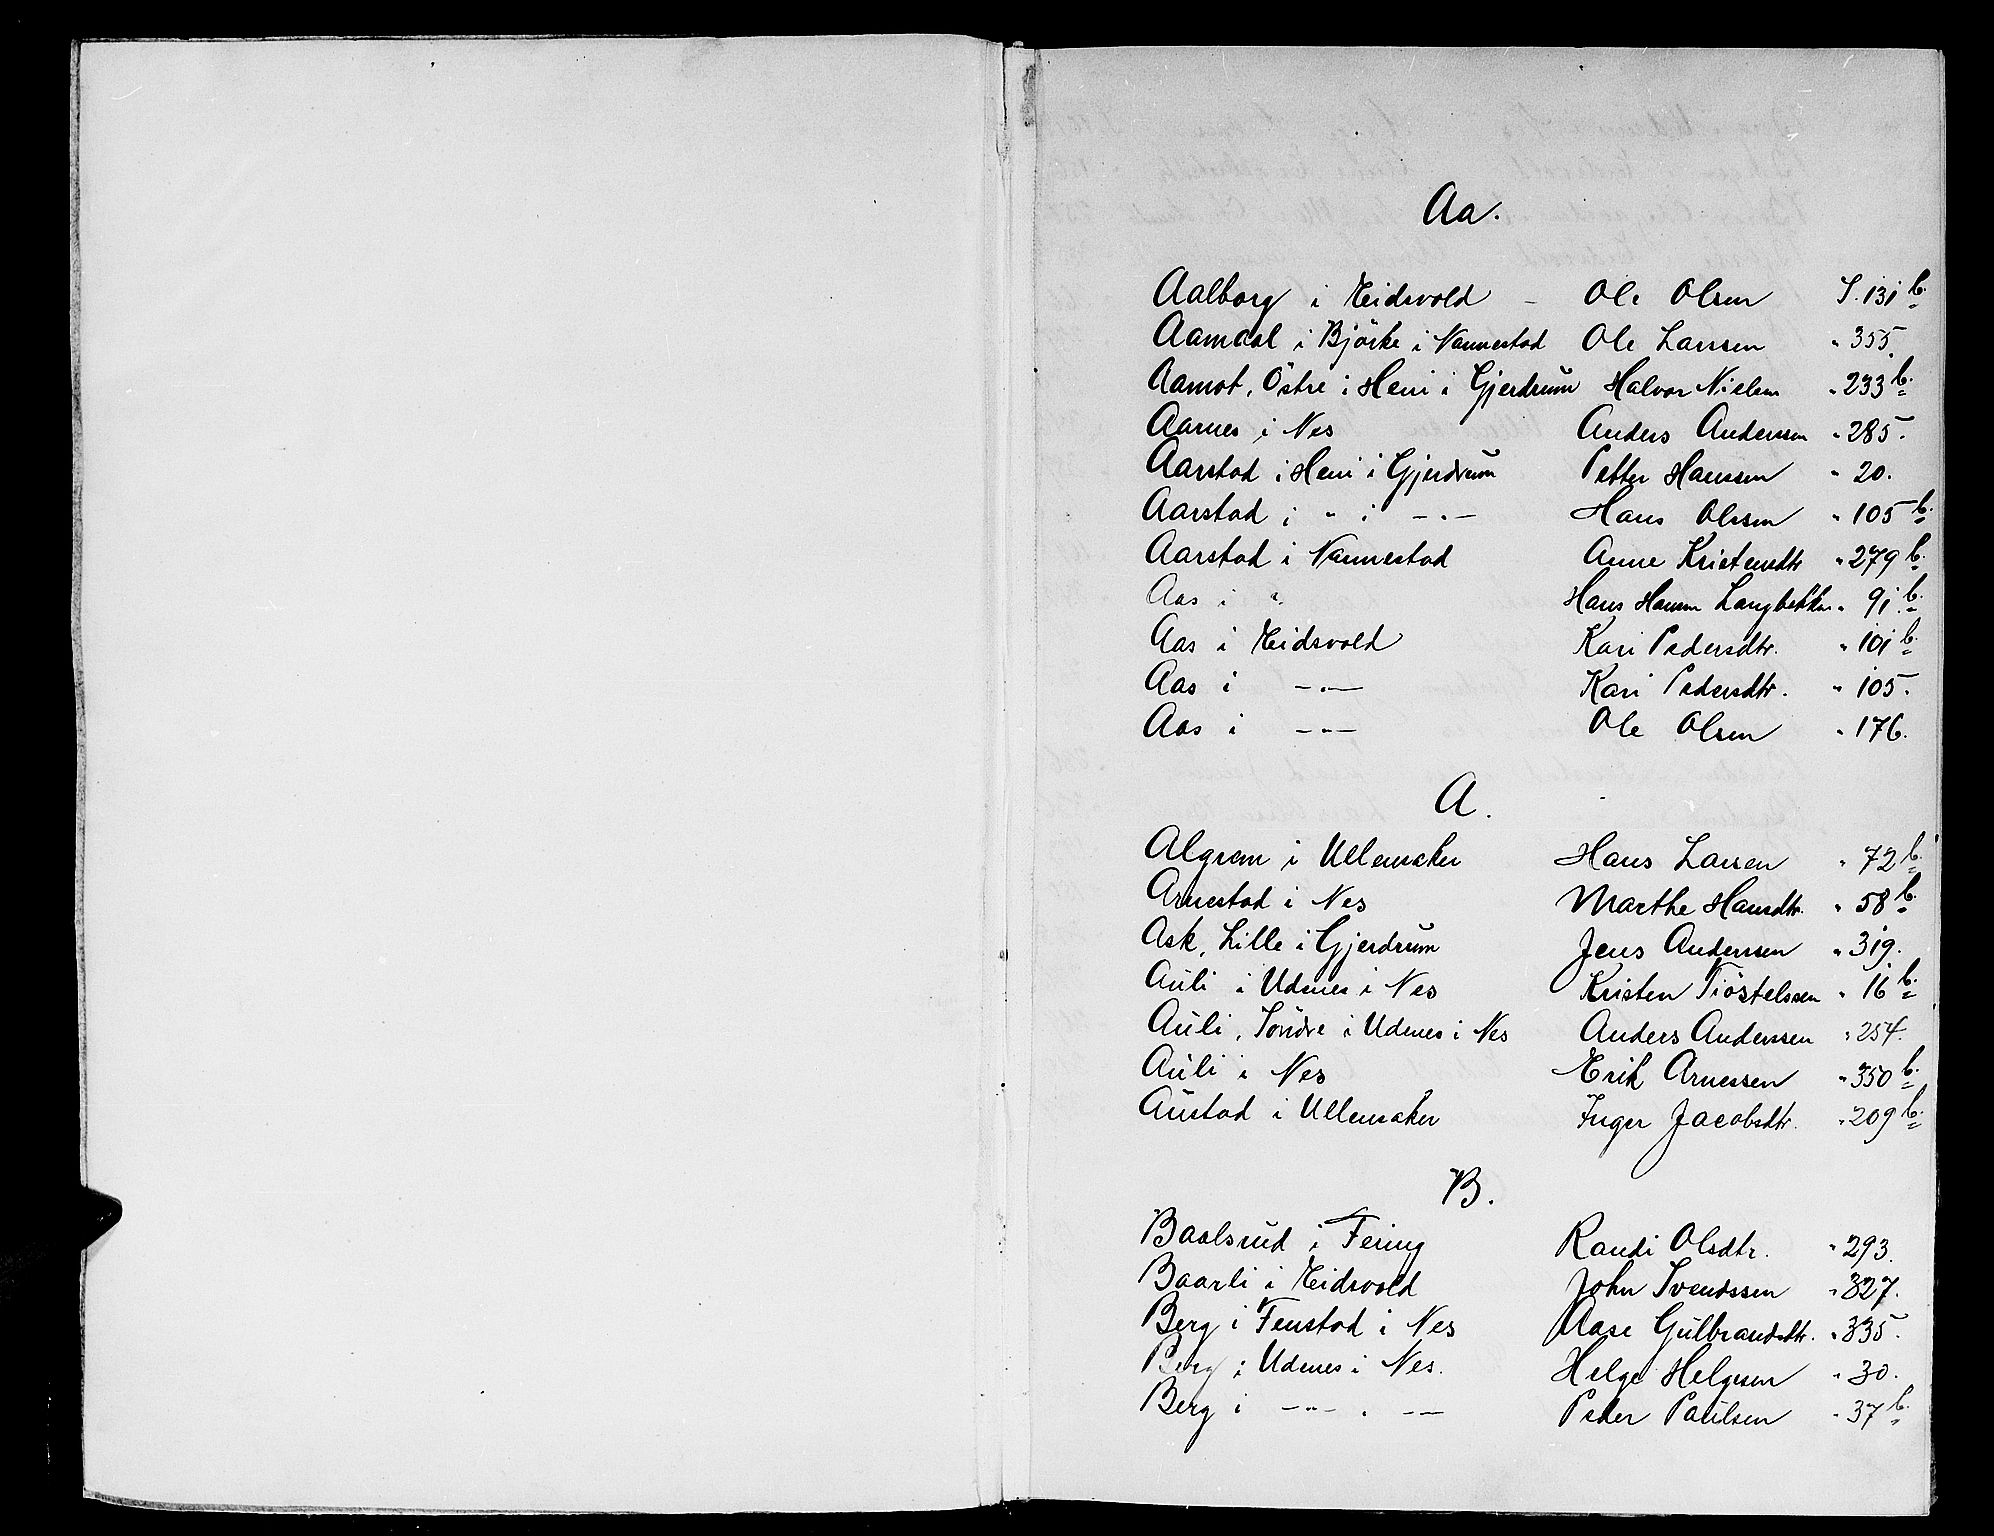 Aa.
Aalborg i Eidsvold - Ole Olsen S. 131 b.
Aamdal i Björke i Nannestad Ole Larsen " 355.
Aamot, Östre i Heni i Gjerdrum Halvor Nielsen " 233 b.
Aarnes i Nes Anders Anderssen " 285.
Aarstad i Heni i Gjerdrum Petter Hanssen " 20.
Aarstad i " i -"- Hans Olssen " 105 b.
Aarstad i Nannestad Anne Kristensdtr " 279 b.
Aas i " Hans Hansen Langbakken " 91 b.
Aas i Eidsvold Kari Pedersdtr. " 101 b.
Aas i -"- Kari Pedersdtr. " 105.
Aas i -"- Ole Olsen " 176.
A.
Algrem i Ullensaker Hans Larsen " 72 b.
Arnestad i Nes Marthe Hansdtr. " 58 b.
Ask, Lille i Gjerdrum Jens Anderssen " 319.
Auli i Udenes i Nes Kristen Tiöstelssen " 16 b.
Auli, Söndre i Udenes i Nes Anders Anderssen " 254.
Auli i Nes Erik Arnessen " 350 b.
Austad i Ullensaker Inger Jacobsdtr. " 209 b.
B.
Baalsrud i Fering Randi Olsdtr. " 293.
Baarli i Eidsvold John Svendssen " 327.
Berg i Fenstad i Nes Aase Gulbrandsdtr. " 335.
Berg i Udenes i Nes. Helge Helgesen " 30.
Berg i -"- . -- Peder Paulsen " 37 b.